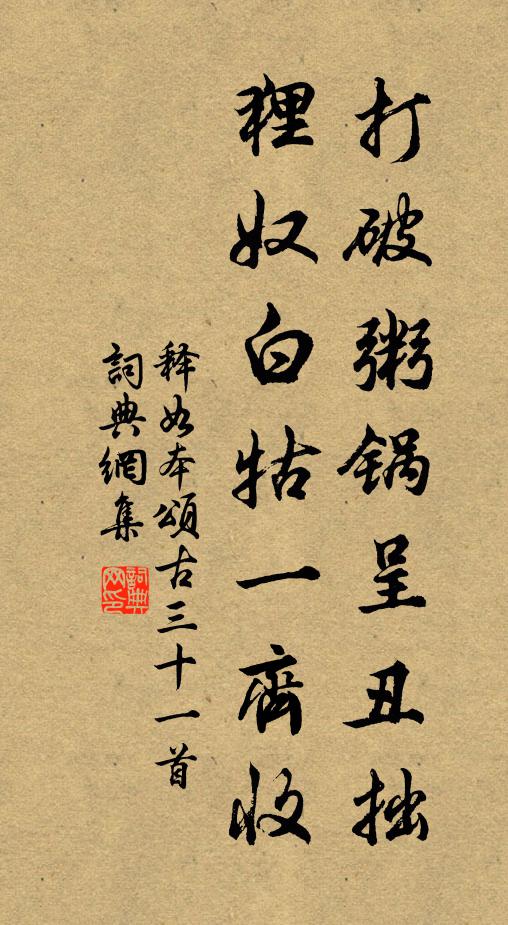 打破粥锅呈丑拙
狸奴白牯一齊收
释如本頌古三十一首
詞典網集
詞典网印